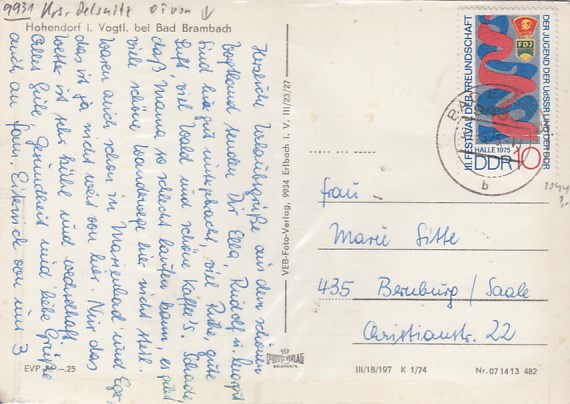 9931 Krs. Oelsnitz
Hohendorf i. Vogtl. bei Bad Brambach
Herzliche Urlaubsgrüße aus dem schönen
Vogtland senden Dir Ella, Rudolf u. Margit
Sind hier gut untergebracht, viel Ruhe, gute
Luft, viel Wald und schöne Kaffee's. Schade,
daß Mama so schlecht laufen kann, es gibt
viele schöne Wanderwege hier nicht steil.
Waren auch schon in Marienbad und Eger,
das ist ja nicht weit von hier. Nur das
Wetter ist sehr kühl und wechselhaft.
Alles Gute, Gesundheit und liebe Grüße
auch an Fam. von uns 3
EVP -.25
VEB-Foto-Verlag, 9934 Erlbach V. III/23/27
FOTO-VERLAG
ERLBACH/V.
III. FESTIVAL DER FREUNDSCHAFT
DER JUGEND DER UDSSR UND DER DDR
FDJ
HALLE 1975
DDR 10
BA
b
Frau
Marie Sitte
435 Bernburg / Saale
Christianstr. 22
III/18/197 K 1/74
Nr. 071413 482